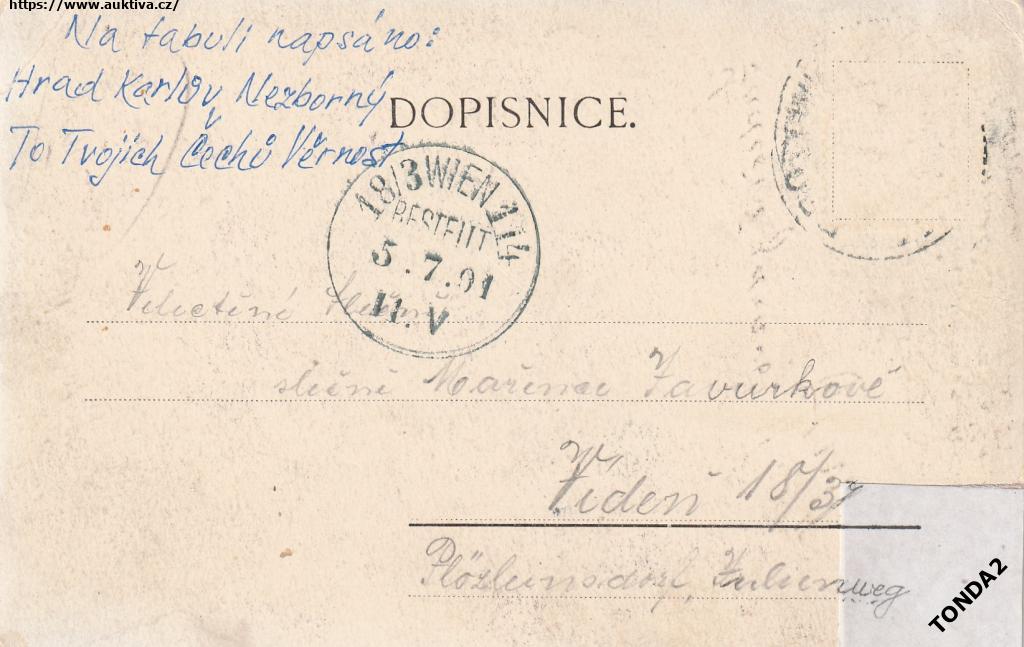 https://www.auktiva.cz/
Na tabuli napsáno:
Hrad Karlův Nezborný
To Tvojich Čechů Věrnost
DOPISNICE.
18/3 WIEN 114
BESTELLT
5.7.01
11.V
Velectěné slečně
slečně Mařence Zavůrkově
Vídeň 18/3
weg
TONDA2